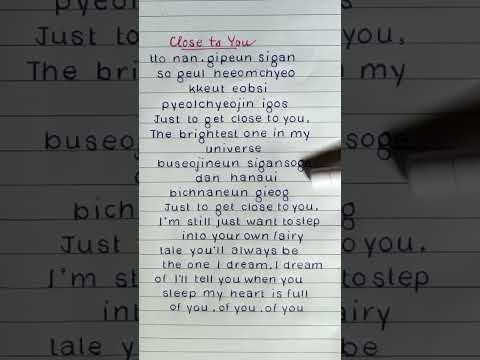 Close to You
tto nan. gipeun sigan
so geul heeomchyeo
kkeut eobsi
pyeolchyeojin igos
Just to get close to you.
The brightest one in my
universe
buseojineun sigansoge
dan hanaui
bichnaneun gieog
Just to get close to you.
I'm still just want to step
into your own fairy
tale you'll always be
the one I dream. I dream
of I'll tell you when you
sleep my heart is full
of you. of you. of you